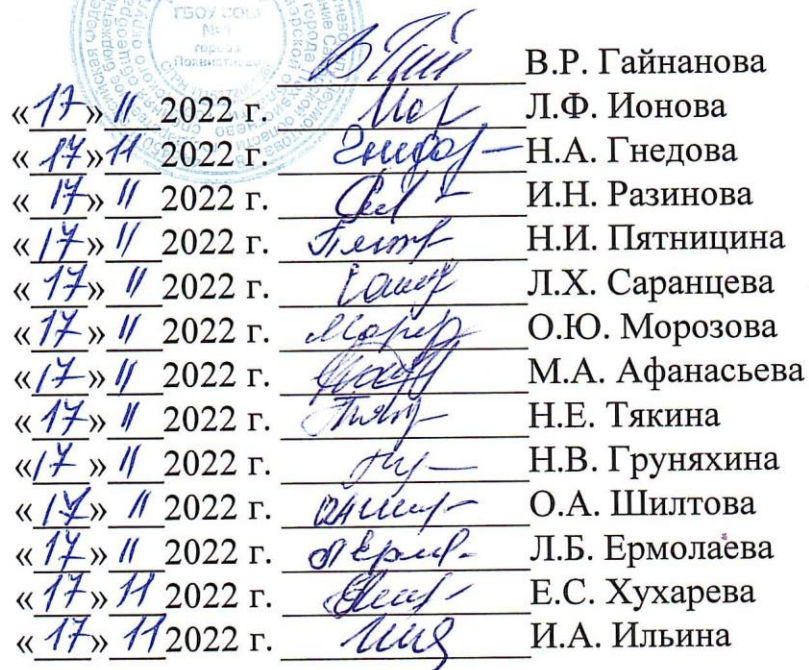 ГБОУ СОШ
города
В.Р. Гайнанова
«17» 11 2022 г. Л.Ф. Ионова
«17» 11 2022 г. Н.А. Гнедова
«17» 11 2022 г. И.Н. Разинова
«17» 11 2022 г. Н.И. Пятницина
«17» 11 2022 г. Л.Х. Саранцева
«17» 11 2022 г. О.Ю. Морозова
«17» 11 2022 г. М.А. Афанасьева
«17» 11 2022 г. Н.Е. Тякина
«17» 11 2022 г. Н.В. Груняхина
«17» 11 2022 г. О.А. Шилтова
«17» 11 2022 г. Л.Б. Ермолаева
«17» 11 2022 г. Е.С. Хухарева
«17» 11 2022 г. И.А. Ильина